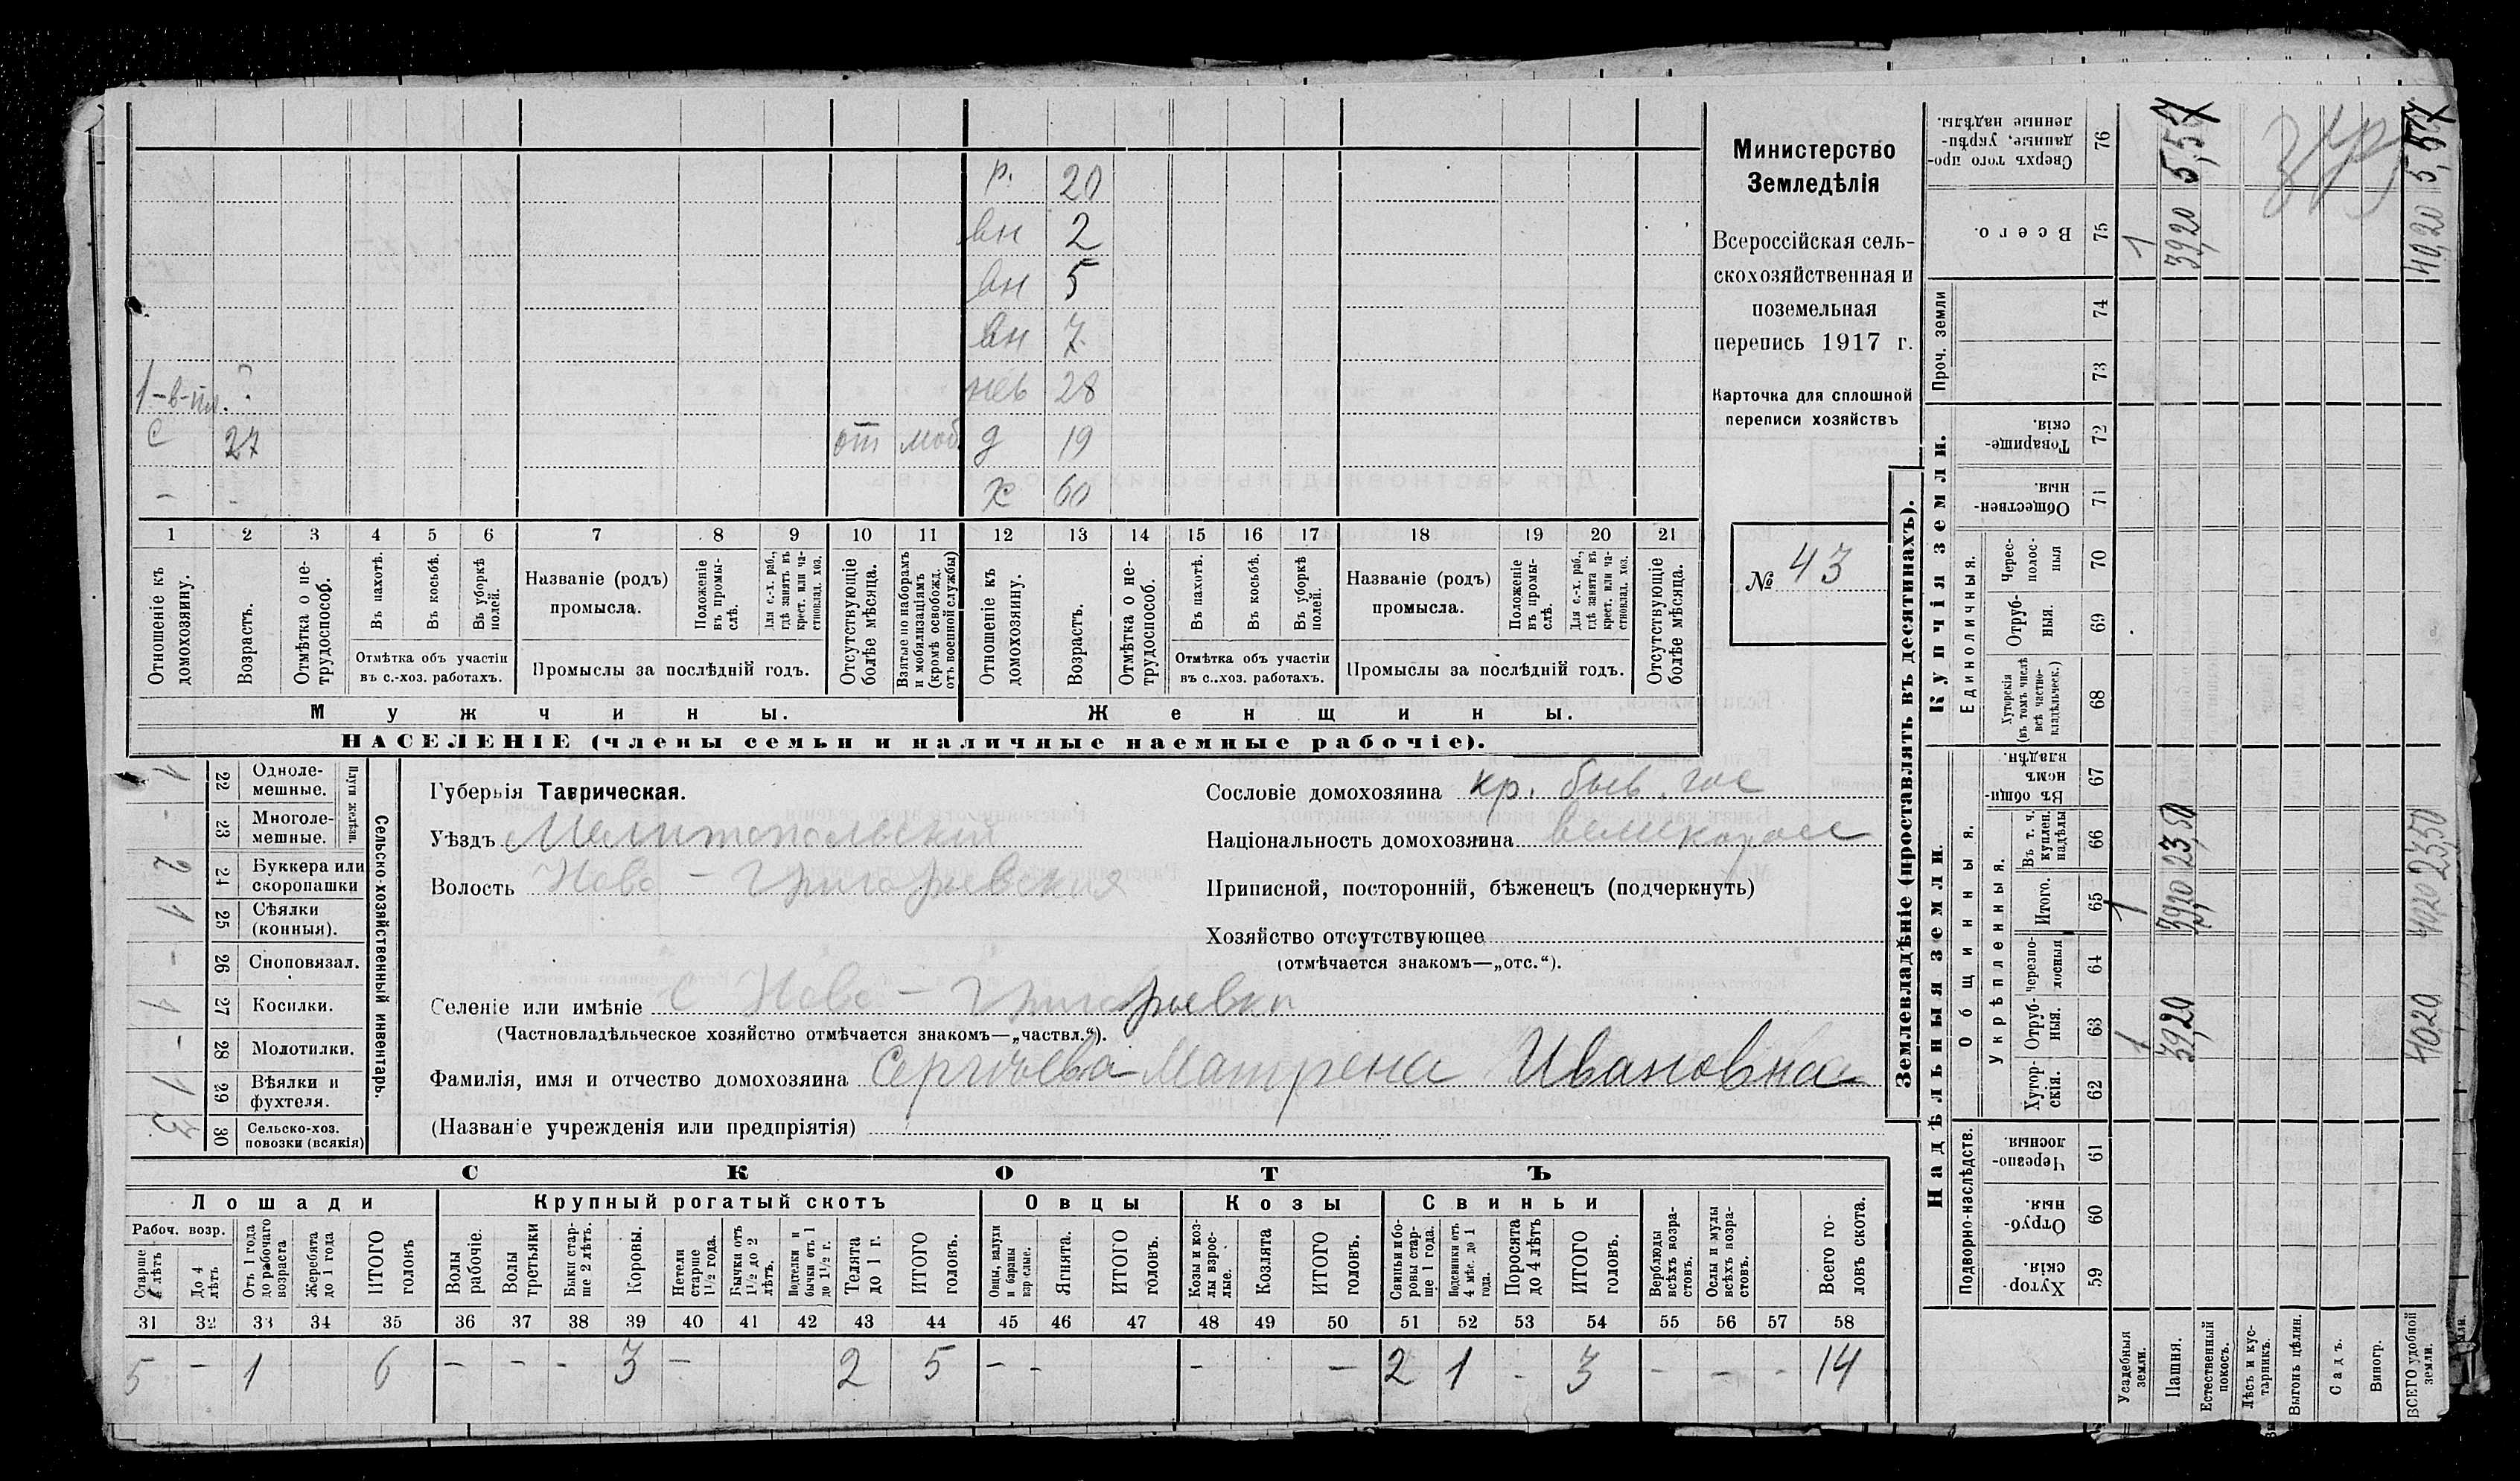 р. 20
вн 2
вн 5
вн 7
1-в-пл. ? нев 28
С 27 от моб. д 19
- - х 60
1 2 3 4 5 6 7 8 9 10 11 12 13 14 15 16 17 18 19 20 21
Отношеніе къ домохозяину.
Возрастъ.
Отмѣтка о не-трудоспособ.
Въ пахотѣ.
Въ косьбѣ.
Въ уборкѣ полей.
Отмѣтка объ участіи
въ с.-хоз. работахъ.
Названіе (родъ)
промысла.
Положеніе въ промы-слѣ.
Для с.-х. раб., гдѣ занятъ въ крест. или ча-стновлад. хоз.
Промыслы за послѣдній годъ.
Отсутствующіе болѣе мѣсяца.
Взятые по наборамъ и мобилизаціямъ (кромѣ освобожд. отъ военной службы)
Отношеніе къ домохозяину.
Возрастъ.
Отмѣтка о не-трудоспособ.
Въ пахотѣ.
Въ косьбѣ.
Въ уборкѣ полей.
Отмѣтка объ участіи
въ с..хоз. работахъ.
Названіе (родъ)
промысла.
Положеніе въ промы-слѣ.
Для с.-х. раб., гдѣ занята въ крест. или ча-стновлад. хоз.
Промыслы за послѣдній годъ.
Отсутствующіе болѣе мѣсяца.
Мужчины. Женщины.
НАСЕЛЕНІЕ (члены семьи и наличные наемные рабочіе).
Министерство
Земледѣлія
Всероссійская сель-
скохозяйственная и
поземельная
перепись 1917 г.
Карточка для сплошной
переписи хозяйствъ
№ 43
Сельско-хозяйственный инвентарь.
Плуги желѣзн.
1 22 Одноле-мешные.
- 23 Многоле-мешные.
2 24 Буккера или скоропашки
1 25 Сѣялки (конныя).
- 26 Сноповязал.
1 27 Косилки.
- 28 Молотилки.
1 29 Вѣялки и фухтеля.
3 30 Сельско-хоз. повозки (всякія)
Губернія Таврическая.
Уѣздъ Мелитопольскій
Волость Ново-Григорьевская
Селеніе или имѣніе С Ново-Григорьевка
(Частновладѣльческое хозяйство отмѣчается знакомъ—„частвл.“).
Фамилія, имя и отчество домохозяина Сергѣева Матрена Ивановна
(Названіе учрежденія или предпріятія)
Сословіе домохозяина кр. быв. гос
Національность домохозяина великоросс
Приписной, посторонній, бѣженецъ (подчеркнуть)
Хозяйство отсутствующее
(отмѣчается знакомъ—„отс.“).
СКОТЪ
Лошади Крупный рогатый скотъ Овцы Козы Свиньи
Рабоч. возр.
Старше 4 лѣтъ
До 4 лѣтъ
Отъ 1 года до рабочаго возраста
Жеребята до 1 года
ИТОГО головъ
Волы рабочіе.
Волы третьяки
Быки стар-ше 2 лѣтъ.
Коровы.
Нетели старше 1 1/2 года.
Бычки отъ 1 1/2 до 2 лѣтъ.
Подтелки и бычки отъ 1 до 1 1/2 г.
Телята до 1 г.
ИТОГО головъ.
Овцы, валухи и бараны взрослые.
Ягнята.
ИТОГО головъ.
Козы и коз-лы взрос-лые.
Козлята
ИТОГО головъ.
Свиньи и бо-ровы стар-ше 1 года.
Подсвинки отъ 4 мѣс. до 1 года.
Поросята до 4 лѣтъ
ИТОГО головъ.
Верблюды всѣхъ возра-стовъ.
Ослы и мулы всѣхъ возра-стовъ.
Всего го-ловъ скота.
31 32 33 34 35 36 37 38 39 40 41 42 43 44 45 46 47 48 49 50 51 52 53 54 55 56 57 58
5 - 1 6 - - - 3 - 2 5 - - - - 2 1 - 3 - - - 14
Землевладѣніе (проставлять въ десятинахъ).
Надѣльныя земли.
Купчія земли.
Подворно-наслѣдств.
Общинныя.
Укрѣпленныя.
Единоличныя.
Проч. земли
59 Хутор-скія.
60 Отруб-ныя.
61 Черезпо-лосныя.
62 Хутор-скія.
63 Отруб-ныя.
64 Черезпо-лосныя
65 Итого.
66 Въ т. ч. куплен. надѣлы
67 Въ общин-номъ владѣн.
68 Хуторскія (въ томъ числѣ всѣ частно-владѣльческ.)
69 Отруб-ныя.
70 Черес-полос-ныя
71 Обществен-ныя.
72 Товарище-скія.
73
74
75 Всего.
76 Сверхъ того про-данные, укрѣп-ленные надѣлы.
Усадебныя земли. 1 1 1
Пашня. 39,20 39,20 23,50 39,20 5,57
Естественный покосъ.
Лѣсъ и кус-тарникъ.
Выгонъ цѣлин.
Садъ.
Виногр.
ВСЕГО удобной земли. 40,20 40,20 23,50 40,20 5,57